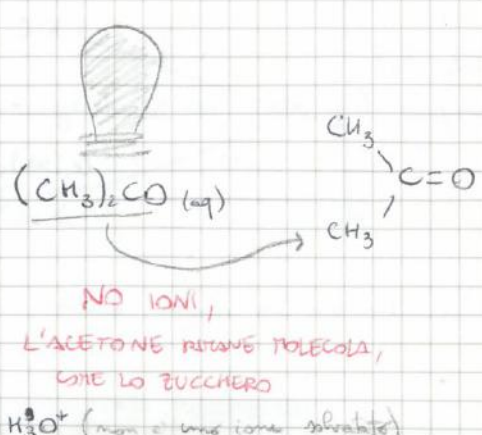 CH₃
(CH₃)₂CO (aq)
C=O
CH₃
NO IONI,
L'ACETONE RIMANE MOLECOLA,
COME LO ZUCCHERO
H₃O⁺ (non è uno ione solvatato)